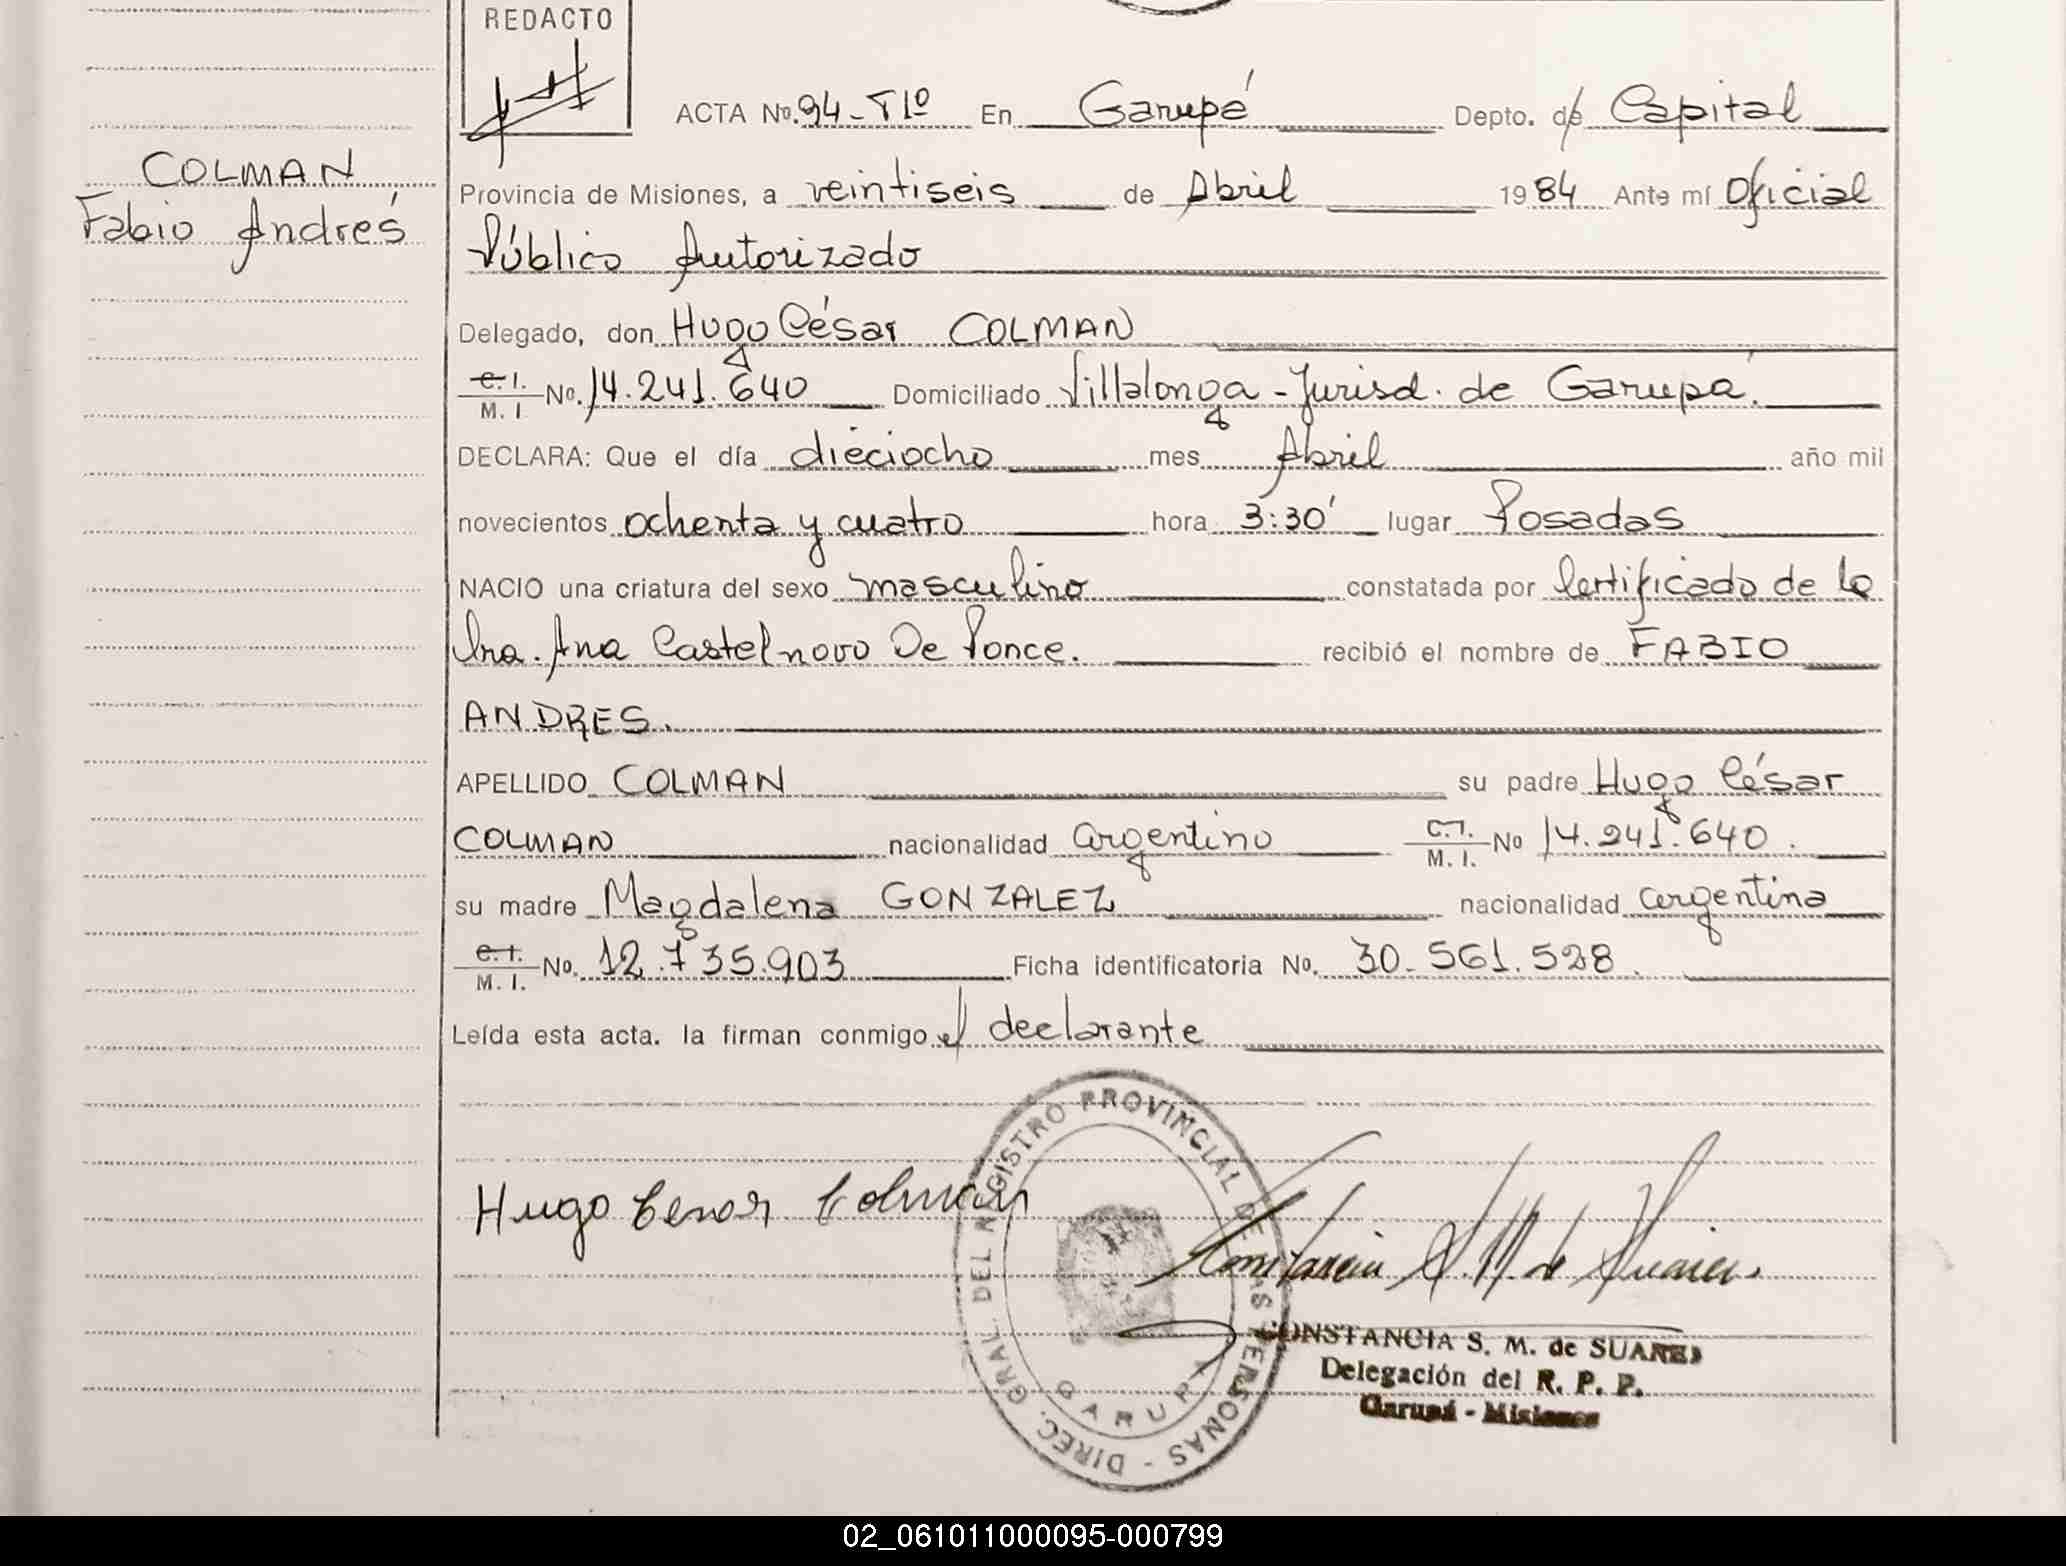 REDACTO
ACTA No. 94 - Tº1º En Garupá Depto. de Capital
COLMAN
Fabio Andrés
Provincia de Misiones, a veintiseis de Abril 1984 Ante mí Oficial
Público Autorizado
Delegado, don Hugo César COLMAN
C. I. M. I No. 14.241.640 Domiciliado Villalonga - Jurisd. de Garupá.
DECLARA: Que el día dieciocho mes Abril año mil
novecientos ochenta y cuatro hora 3:30' lugar Posadas
NACIO una criatura del sexo masculino constatada por Certificado de la
Dra. Ana Castelnovo De Ponce. recibió el nombre de FABIO
ANDRES.
APELLIDO COLMAN su padre Hugo César
COLMAN nacionalidad argentino C.I. M. I. No 14.241.640.
su madre Magdalena GONZALEZ nacionalidad argentina
C. I. M. I. No. 12.735.903 Ficha identificatoria No. 30-561.528.
Leída esta acta. la firman conmigo el declarante
DIREC. GRAL. DEL REGISTRO PROVINCIAL DE LAS PERSONAS -
GARUPA
Hugo Cesar Colman
Constancia S. M. de Suarez
CONSTANCIA S. M. de SUAREZ
Delegación del R. P. P.
Garupá - Misiones
02_061011000095-000799